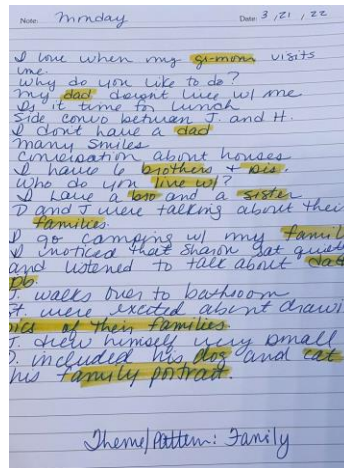 Note: Monday Date: 3/21/22
I love when my g-mom visits
me.
Why do you like to do?
My dad doesn't live w/ me
Is it time for lunch
Side convo between J. and H.
I don't have a dad
many smiles
conversation about houses
I have 6 brothers + sis.
Who do you live w/?
I have a bro and a sister
D and J were talking about their
families.
I go camping w/ my famil
I noticed that Sharon sat quiet
and listened to talk about dad
J. walks over to bathroom
were excited about drawi
pics of their families.
J. drew himself very small
D. included his dog and cat
his family portrait.
Theme/Pattern: Family